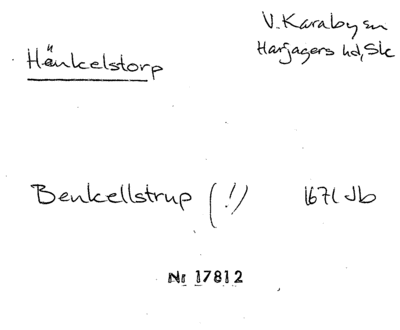 V. Karaby sn
Harjagers hd, Sk
Hänkelstorp
Benkellstrup (!) 1671 Jb
Nr 17812